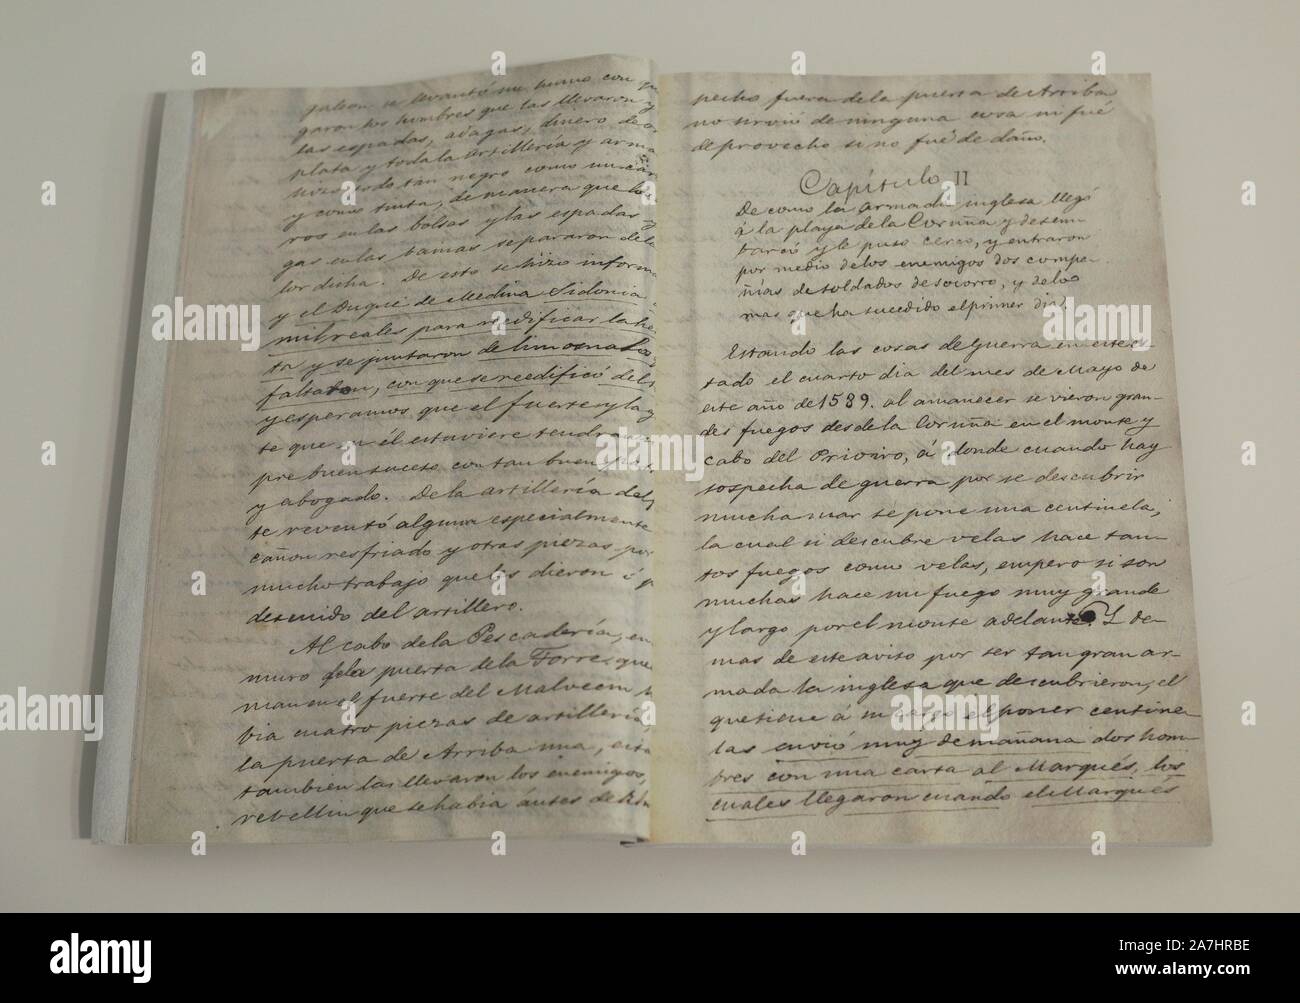 y el Duque de Medina Sidonia
mil reales para reedificar la
ta y se juntaron de limosna
faltaban, con que se reedificó del
y esperamos que el fuerte y la
te que en él estuviere tendra
pre buen suceso con tan buen
y abogado. De la artillería del
te reventó alguna especialmente
cañon resfriado y otras piezas por
mucho trabajo que les dieron ó
descuido del artillero.
Al cabo de la Pescadería, en
muro de la puerta de la Torre, que
man en el fuerte del Malvecin
bia cuatro piezas de artillería,
la puerta de Arriba una, esta
tambien las llevaron los enemigos,
rebellin que se habia ántes de
galeon se levantó un humo con
garon los hombres que las llevaron y
las espadas, dagas, dinero de
plata y toda la artillería y
tan negro como un
y como tinta, de manera que los
ros en las bolsas y las espadas y
gas en las bainas se pararon de la
lor dicha. De esto se hizo
pecho fuera de la puerta de Arriba
no sirvió de ninguna cosa ni fué
de provecho si no fué de daño.
Capítulo II
De como la armada inglesa llegó
á la playa de la Coruña y desem-
barcó y le puso cerco, y entraron
por medio de los enemigos dos compa-
ñias de soldados de socorro, y de lo
mas que ha sucedido el primer dia.
Estando las cosas de guerra en este es-
tado el cuarto dia del mes de Mayo de
este año de 1589. al amanecer se vieron gran-
des fuegos desde la Coruña en el monte y
cabo del Prioiro, á donde cuando hay
sospecha de guerra por se descubrir
mucha mar se pone una centinela,
la cual si descubre velas hace tan-
tos fuegos como velas, empero si son
muchas hace un fuego muy grande
y largo por el monte adelante. Y de-
mas de este aviso por ser tan gran ar-
mada la inglesa que descubrieron, el
que tiene á su cargo el poner centine-
las envió muy de mañana dos hom-
bres con una carta al Marqués, los
cuales llegaron cuando el Marqués
alamy
alamy
2A7HRBE
www.alamy.com